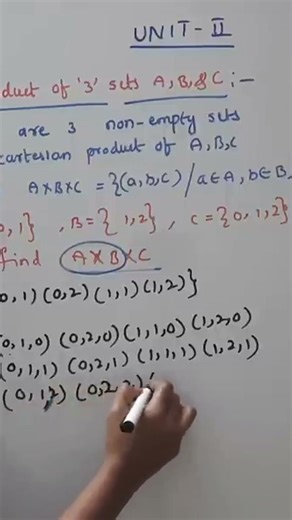 UNIT-II
duct of '3' sets A, B, & C :-
are 3 non-empty sets
cartesian product of A, B, C
A×B×C = {(a,b,c) / a∈A, b∈B,
0,1} , B = { 1,2} , C = {0, 1, 2}
find A×B×C
0,1) (0,2) (1,1) (1,2)}
(0,1,0) (0,2,0) (1,1,0) (1,2,0)
(0,1,1) (0,2,1) (1,1,1) (1,2,1)
(0,1,2) (0,2,2) (